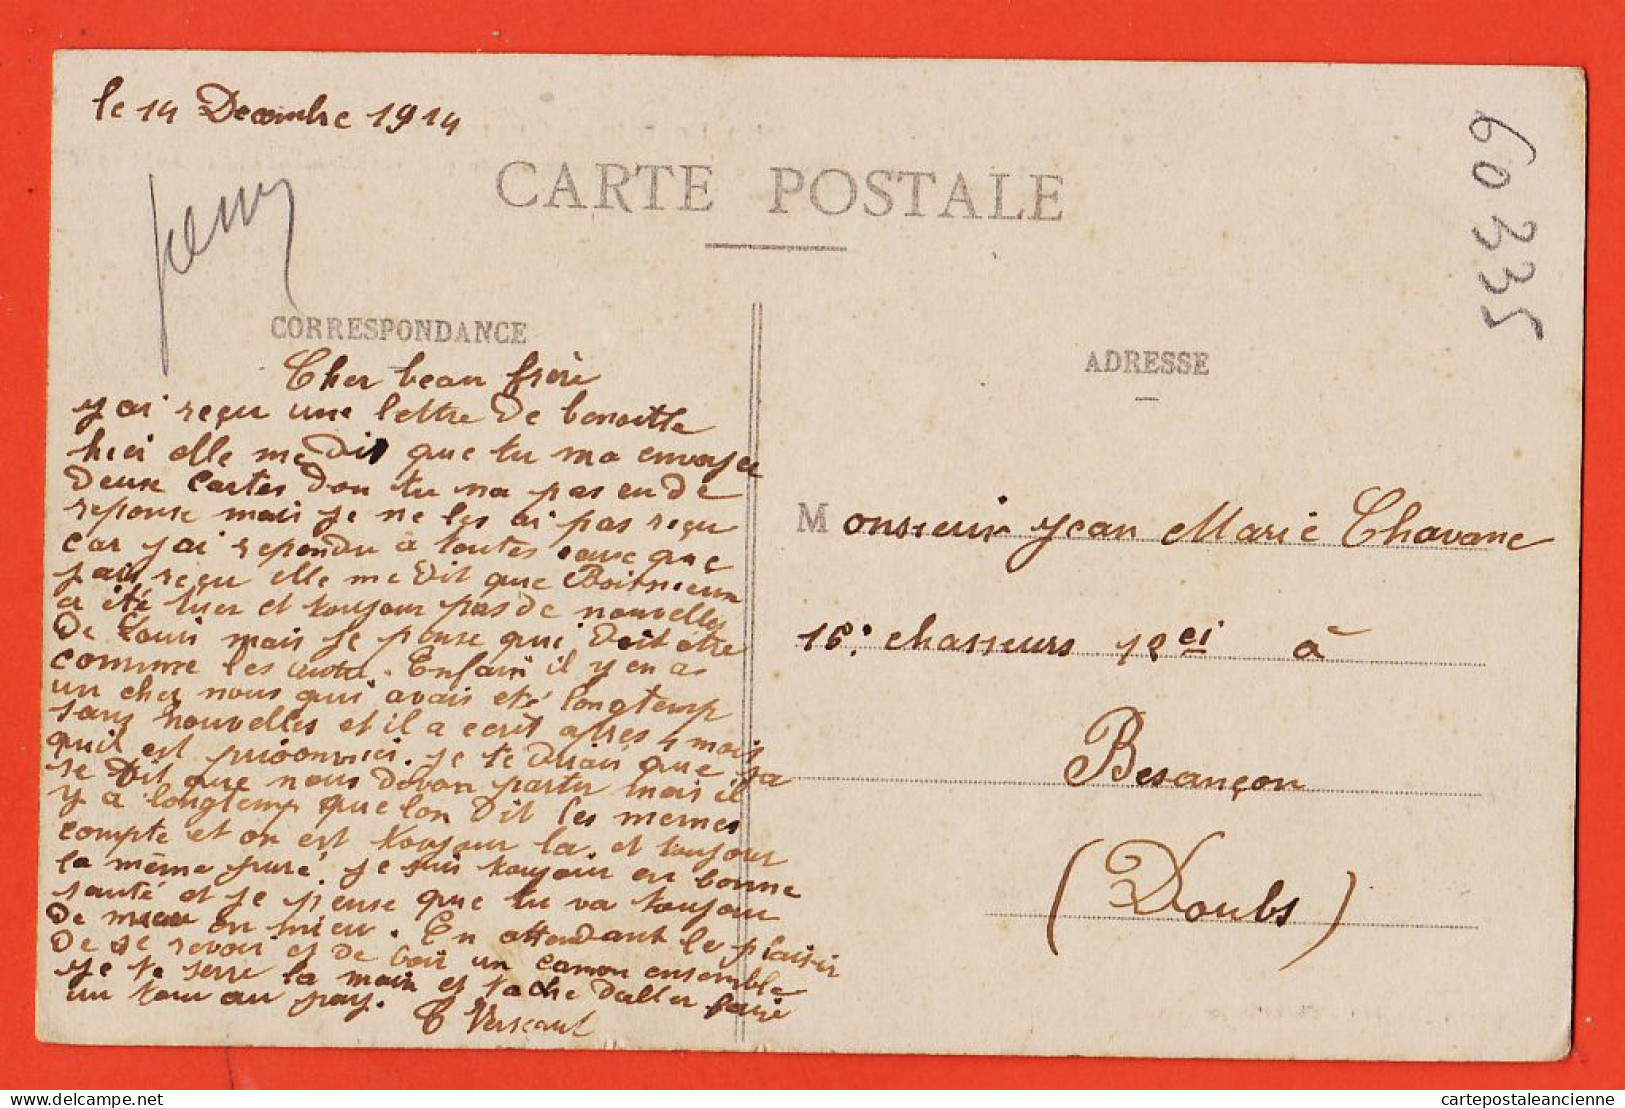 le 14 Decembre 1914
60 335
CARTE POSTALE
CORRESPONDANCE
Cher beau frère
y ai reçu une lettre de benoitte
hier elle me dit que tu ma envoyer
deux cartes don tu na pas eu de
reponse mais je ne les ai pas reçu
car j ai repondu a toutes ceux que
jais reçu elle me dit que Boirnieux
a été tuer et toujour pas de nouvelles
de Louis mais je pense qui doit être
comme les autre. Enfain il y en as
un cher nous qui avais eté longtemp
sans nouvelles et il a ecrit apres 4 mois
quil est prisonnier. je te dirais que sa
se dit que nous devon partir mais il
y a longtemp que lon dit les memes
compte et on est toujour la. et toujour
la même puré. je suis toujour en bonne
santé et je pense que tu va toujour
de mieu en mieu. En attendant le plaisir
de se revoir et de boir un canon ensemble
je te serre la main et tache daller faire
un tour au pay.
ADRESSE
Monsieur Jean Marie Chavane
16e chasseurs 12ei à
Besançon
(Doubs)
cartepostaleancienne.com
cartepostaleancienne